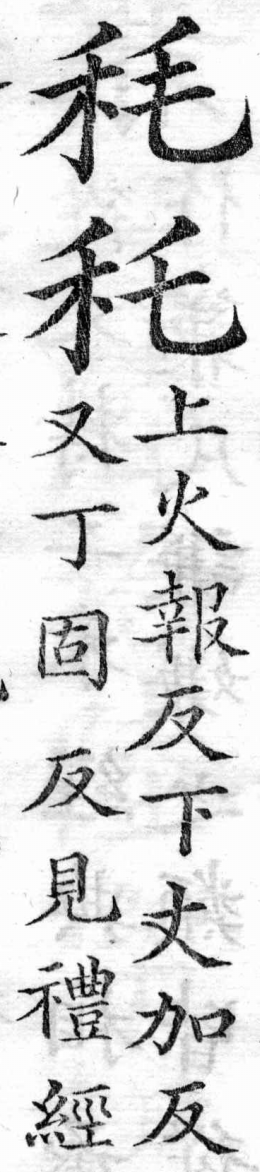 秏秅
上火報反下丈加反
又丁固反見禮經